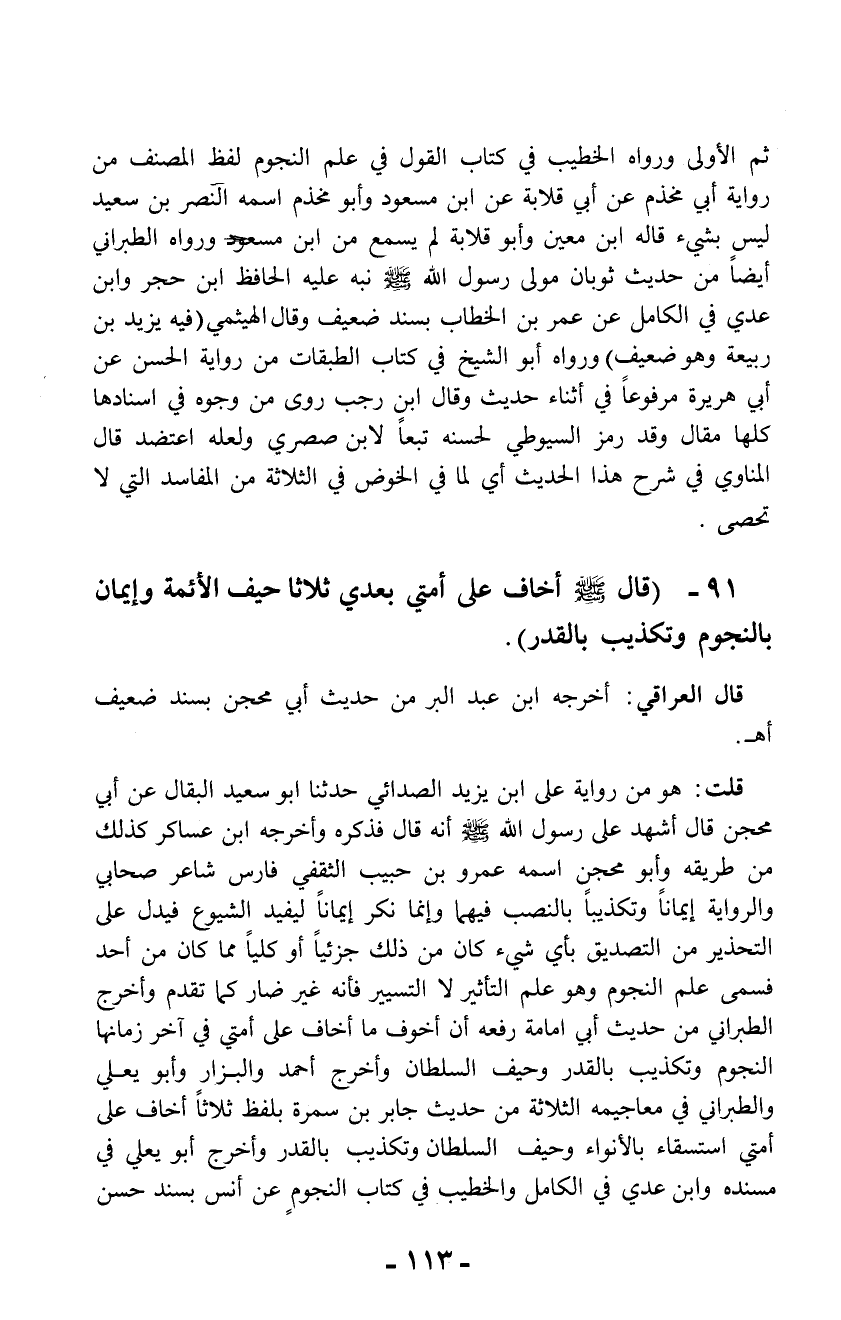 ثم الأولى ورواه الخطيب في كتاب القول في علم النجوم لفظ المصنف من
رواية أبي مخذم عن أبي قلابة عن ابن مسعود وأبو مخذم اسمه النصر بن سعيد
ليس بشيء قاله ابن معين وأبو قلابة لم يسمع من ابن مسعود ورواه الطبراني
أيضاً من حديث ثوبان مولى رسول الله ﷺ نبه عليه الحافظ ابن حجر وابن
عدي في الكامل عن عمر بن الخطاب بسند ضعيف وقال الهيثمي (فيه يزيد بن
ربيعة وهو ضعيف) ورواه أبو الشيخ في كتاب الطبقات من رواية الحسن عن
أبي هريرة مرفوعاً في أثناء حديث وقال ابن رجب روى من وجوه في اسنادها
كلها مقال وقد رمز السيوطي لحسنه تبعاً لابن صصري ولعله اعتضد قال
المناوي في شرح هذا الحديث أي لما في الخوض في الثلاثة من المفاسد التي لا
تحصى .
٩١ - (قال ﷺ أخاف على أمتي بعدي ثلاثا حيف الأئمة وإيمان
بالنجوم وتكذيب بالقدر).
قال العراقي: أخرجه ابن عبد البر من حديث أبي محجن بسند ضعيف
أهـ.
قلت: هو من رواية على ابن يزيد الصدائي حدثنا ابو سعيد البقال عن أبي
محجن قال أشهد على رسول الله ﷺ أنه قال فذكره وأخرجه ابن عساكر كذلك
من طريقه وأبو محجن اسمه عمرو بن حبيب الثقفي فارس شاعر صحابي
والرواية إيماناً وتكذيباً بالنصب فيهما وإنما نكر إيماناً ليفيد الشيوع فيدل على
التحذير من التصديق بأي شيء كان من ذلك جزئياً أو كلياً مما كان من أحد
قسمى علم النجوم وهو علم التأثير لا التسيير فأنه غير ضار كما تقدم وأخرج
الطبراني من حديث أبي امامة رفعه أن أخوف ما أخاف على أمتي في آخر زمانها
النجوم وتكذيب بالقدر وحيف السلطان وأخرج أحمد والبزار وأبو يعلي
والطبراني في معاجيمه الثلاثة من حديث جابر بن سمرة بلفظ ثلاثاً أخاف على
أمتي استسقاء بالأنواء وحيف السلطان وتكذيب بالقدر وأخرج أبو يعلي في
مسنده وابن عدي في الكامل والخطيب في كتاب النجوم عن أنس بسند حسن
- ١١٣ -